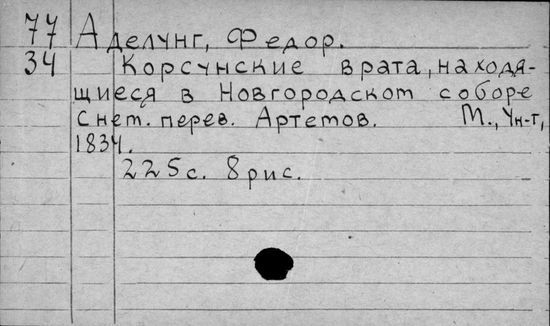 77 Аделунг, Федор.
34 Корсунские врата, находя-
щиеся в Новгородском соборе
с нем. перев. Артемов. М., Ун-т,
1834.
225с. 8рис.